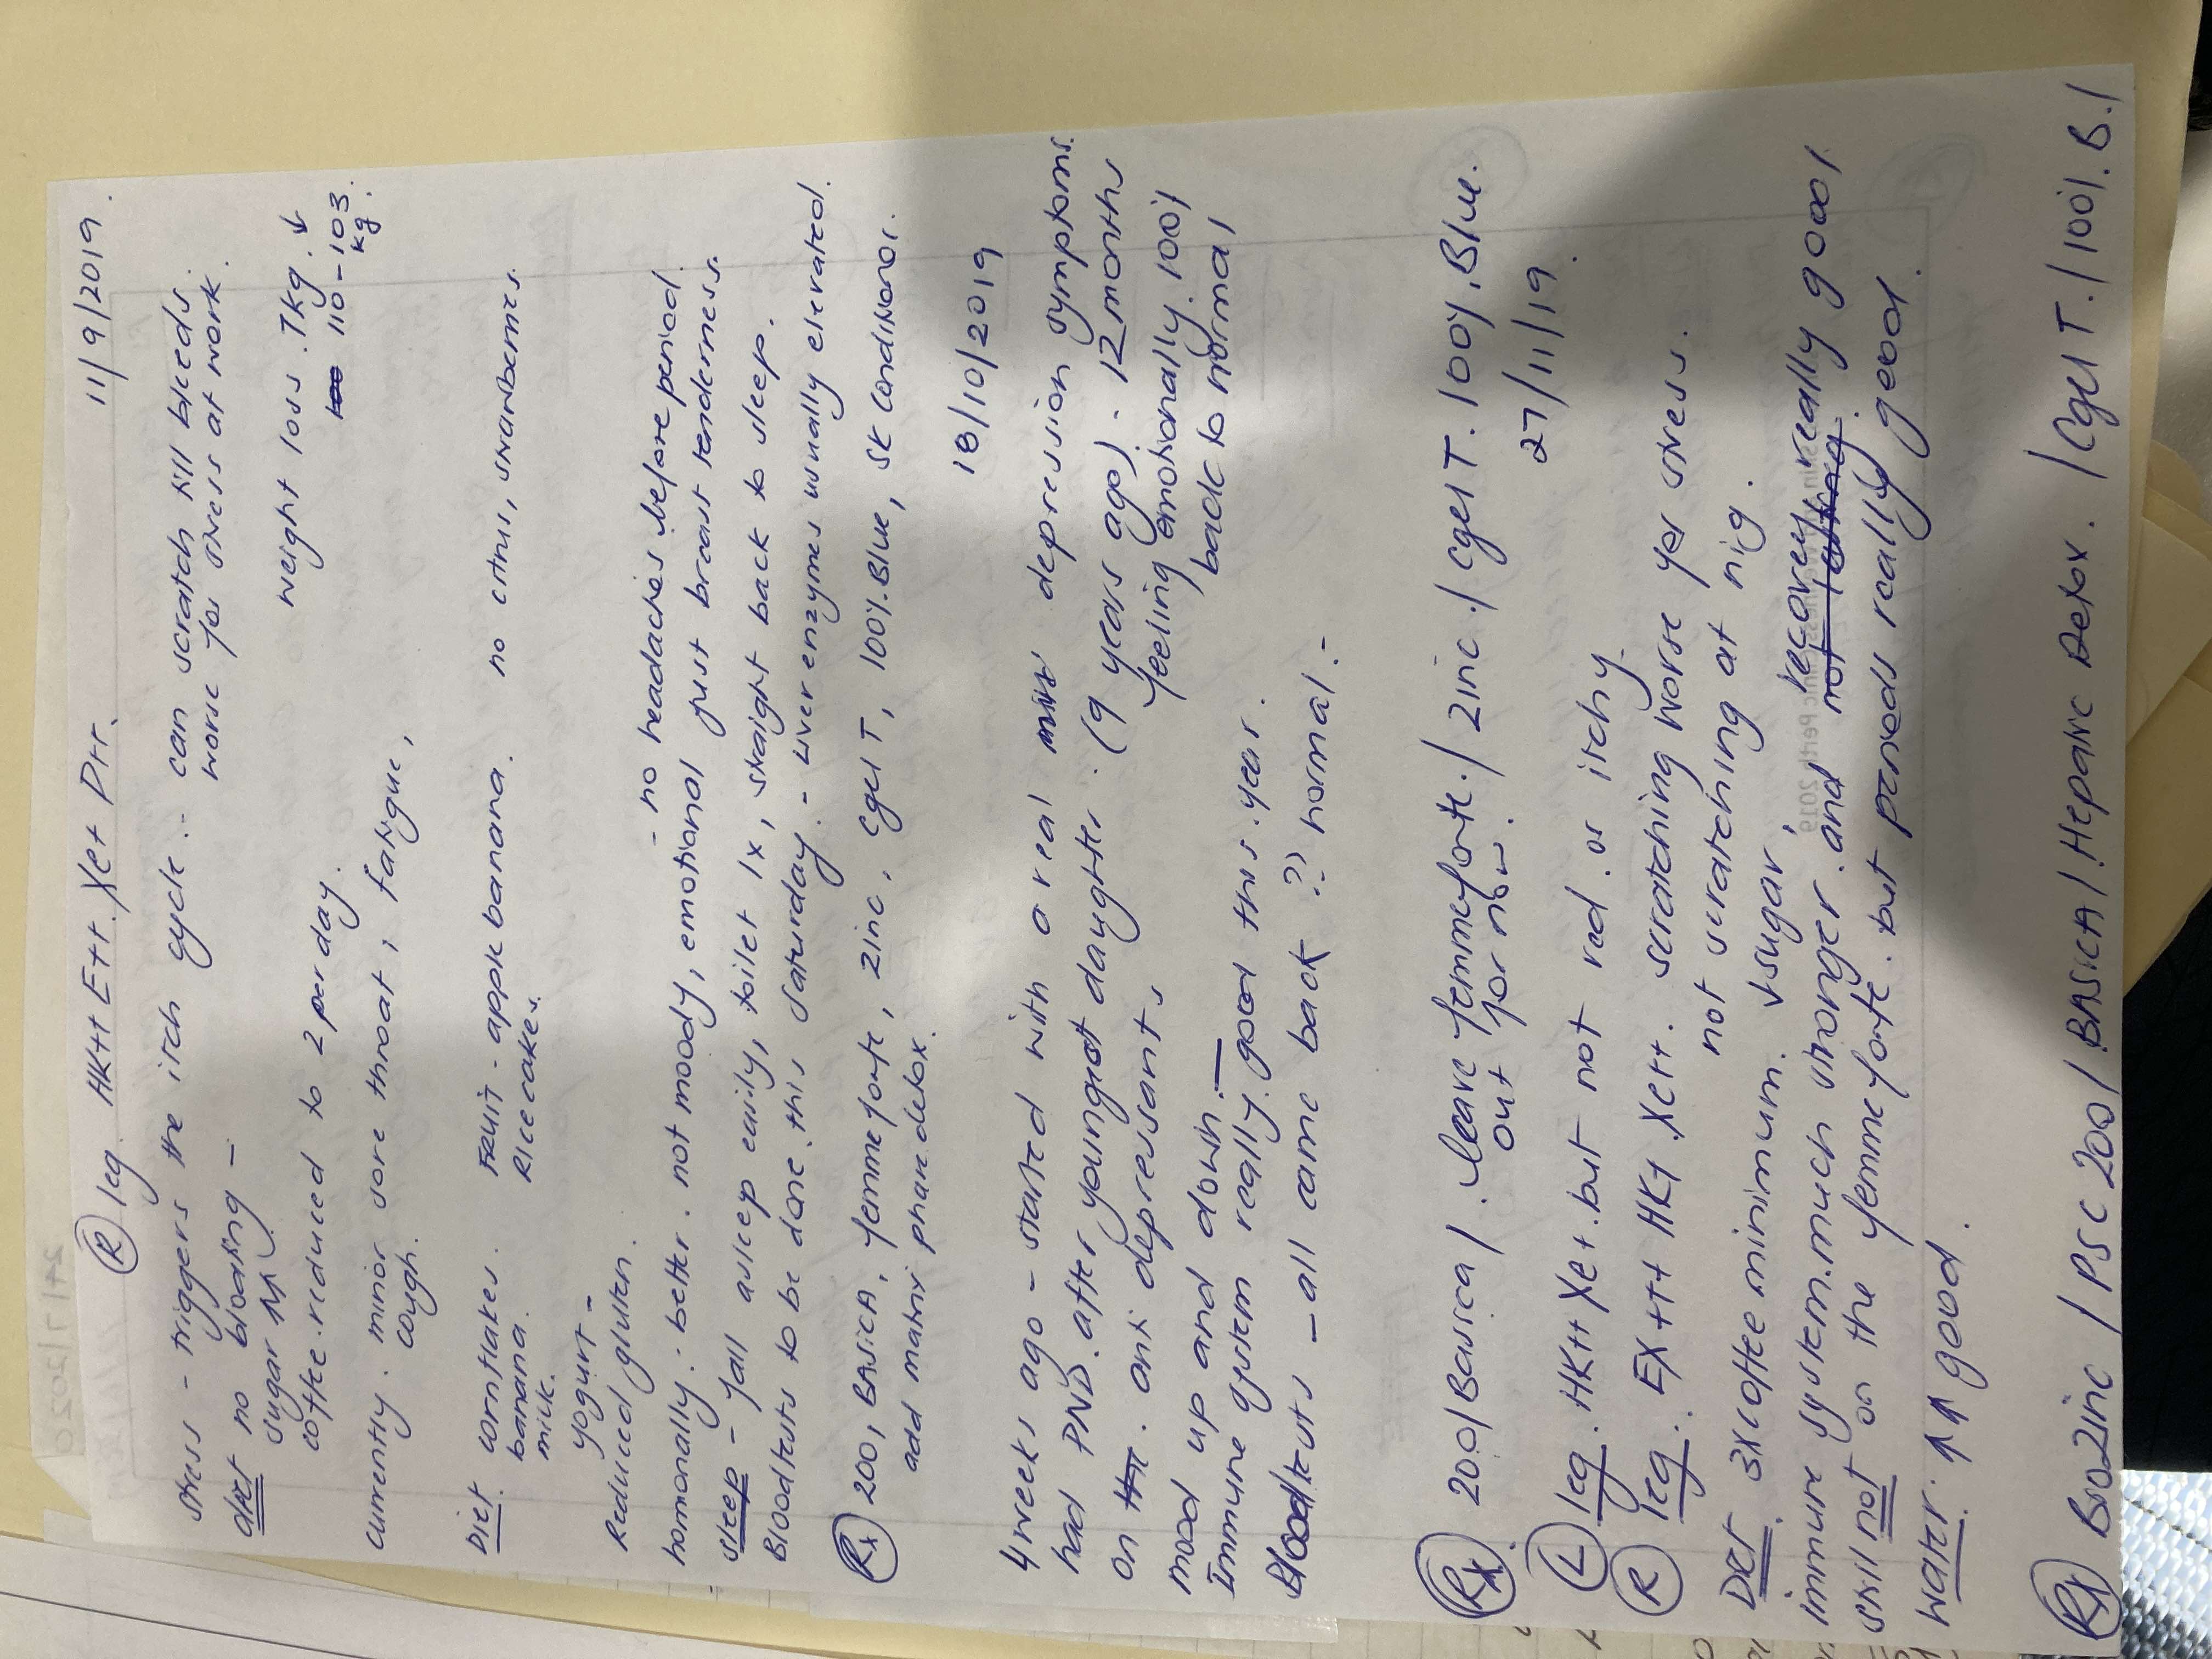 11/9/2019.
(R) leg. HK++ E++. Xe+ D++.
stress - triggers the itch cycle. - can scratch till bleeds.
worse for stress at work.
diet no bloating -
sugar
weight loss. 7kg. ↓
110 - 103 kg.
coffee. reduced to 2 per day.
currently. minor sore throat, fatigue,
cough.
Diet. cornflakes. FRUIT - apple banana. no citrus, strawberries.
banana. Rice cakes.
milk.
yogurt -
Reduced gluten.
- no headaches before period.
homonally. - better. not moody, emotional just breast tenderness.
sleep - fall asleep easily, toilet 1x, straight back to sleep.
Bloodtests to be done this saturday. - liver enzymes usually elevated.
(Rx) 200, BASICA, femmeforte, zinc, cgel T, 100%.Blue, SK conditioner.
add matrix phase detox.
18/10/2019
4 weeks ago - started with a real depression symptoms.
had PND. after youngest daughter. (9 years ago) - 12 months
on anti depressants feeling emotionally 100%
back to normal
mood up and down. —
Immune system really good this year.
Bloodtests - all came back ?? normal. -
(Rx). 200/Basica/. leave femmeforte./ zinc./ cgel T. 100%.Blue.
out for now.
27/11/19.
(L) leg. HK++ Xe+. but not red. or itchy.
(R) leg. EX+++ HK+. Xe++. scratching worse for stress.
not scratching at nig.
Diet. 3x coffee minimum. ↓sugar,
immune system. much stronger. and recovery really good
still not on the femmeforte. but periods really good.
water. ↑↑ good.
(Rx) Bio zinc / PSC 200/ BASICA/. Hepatic Detox. /Cgel T./100%.B./